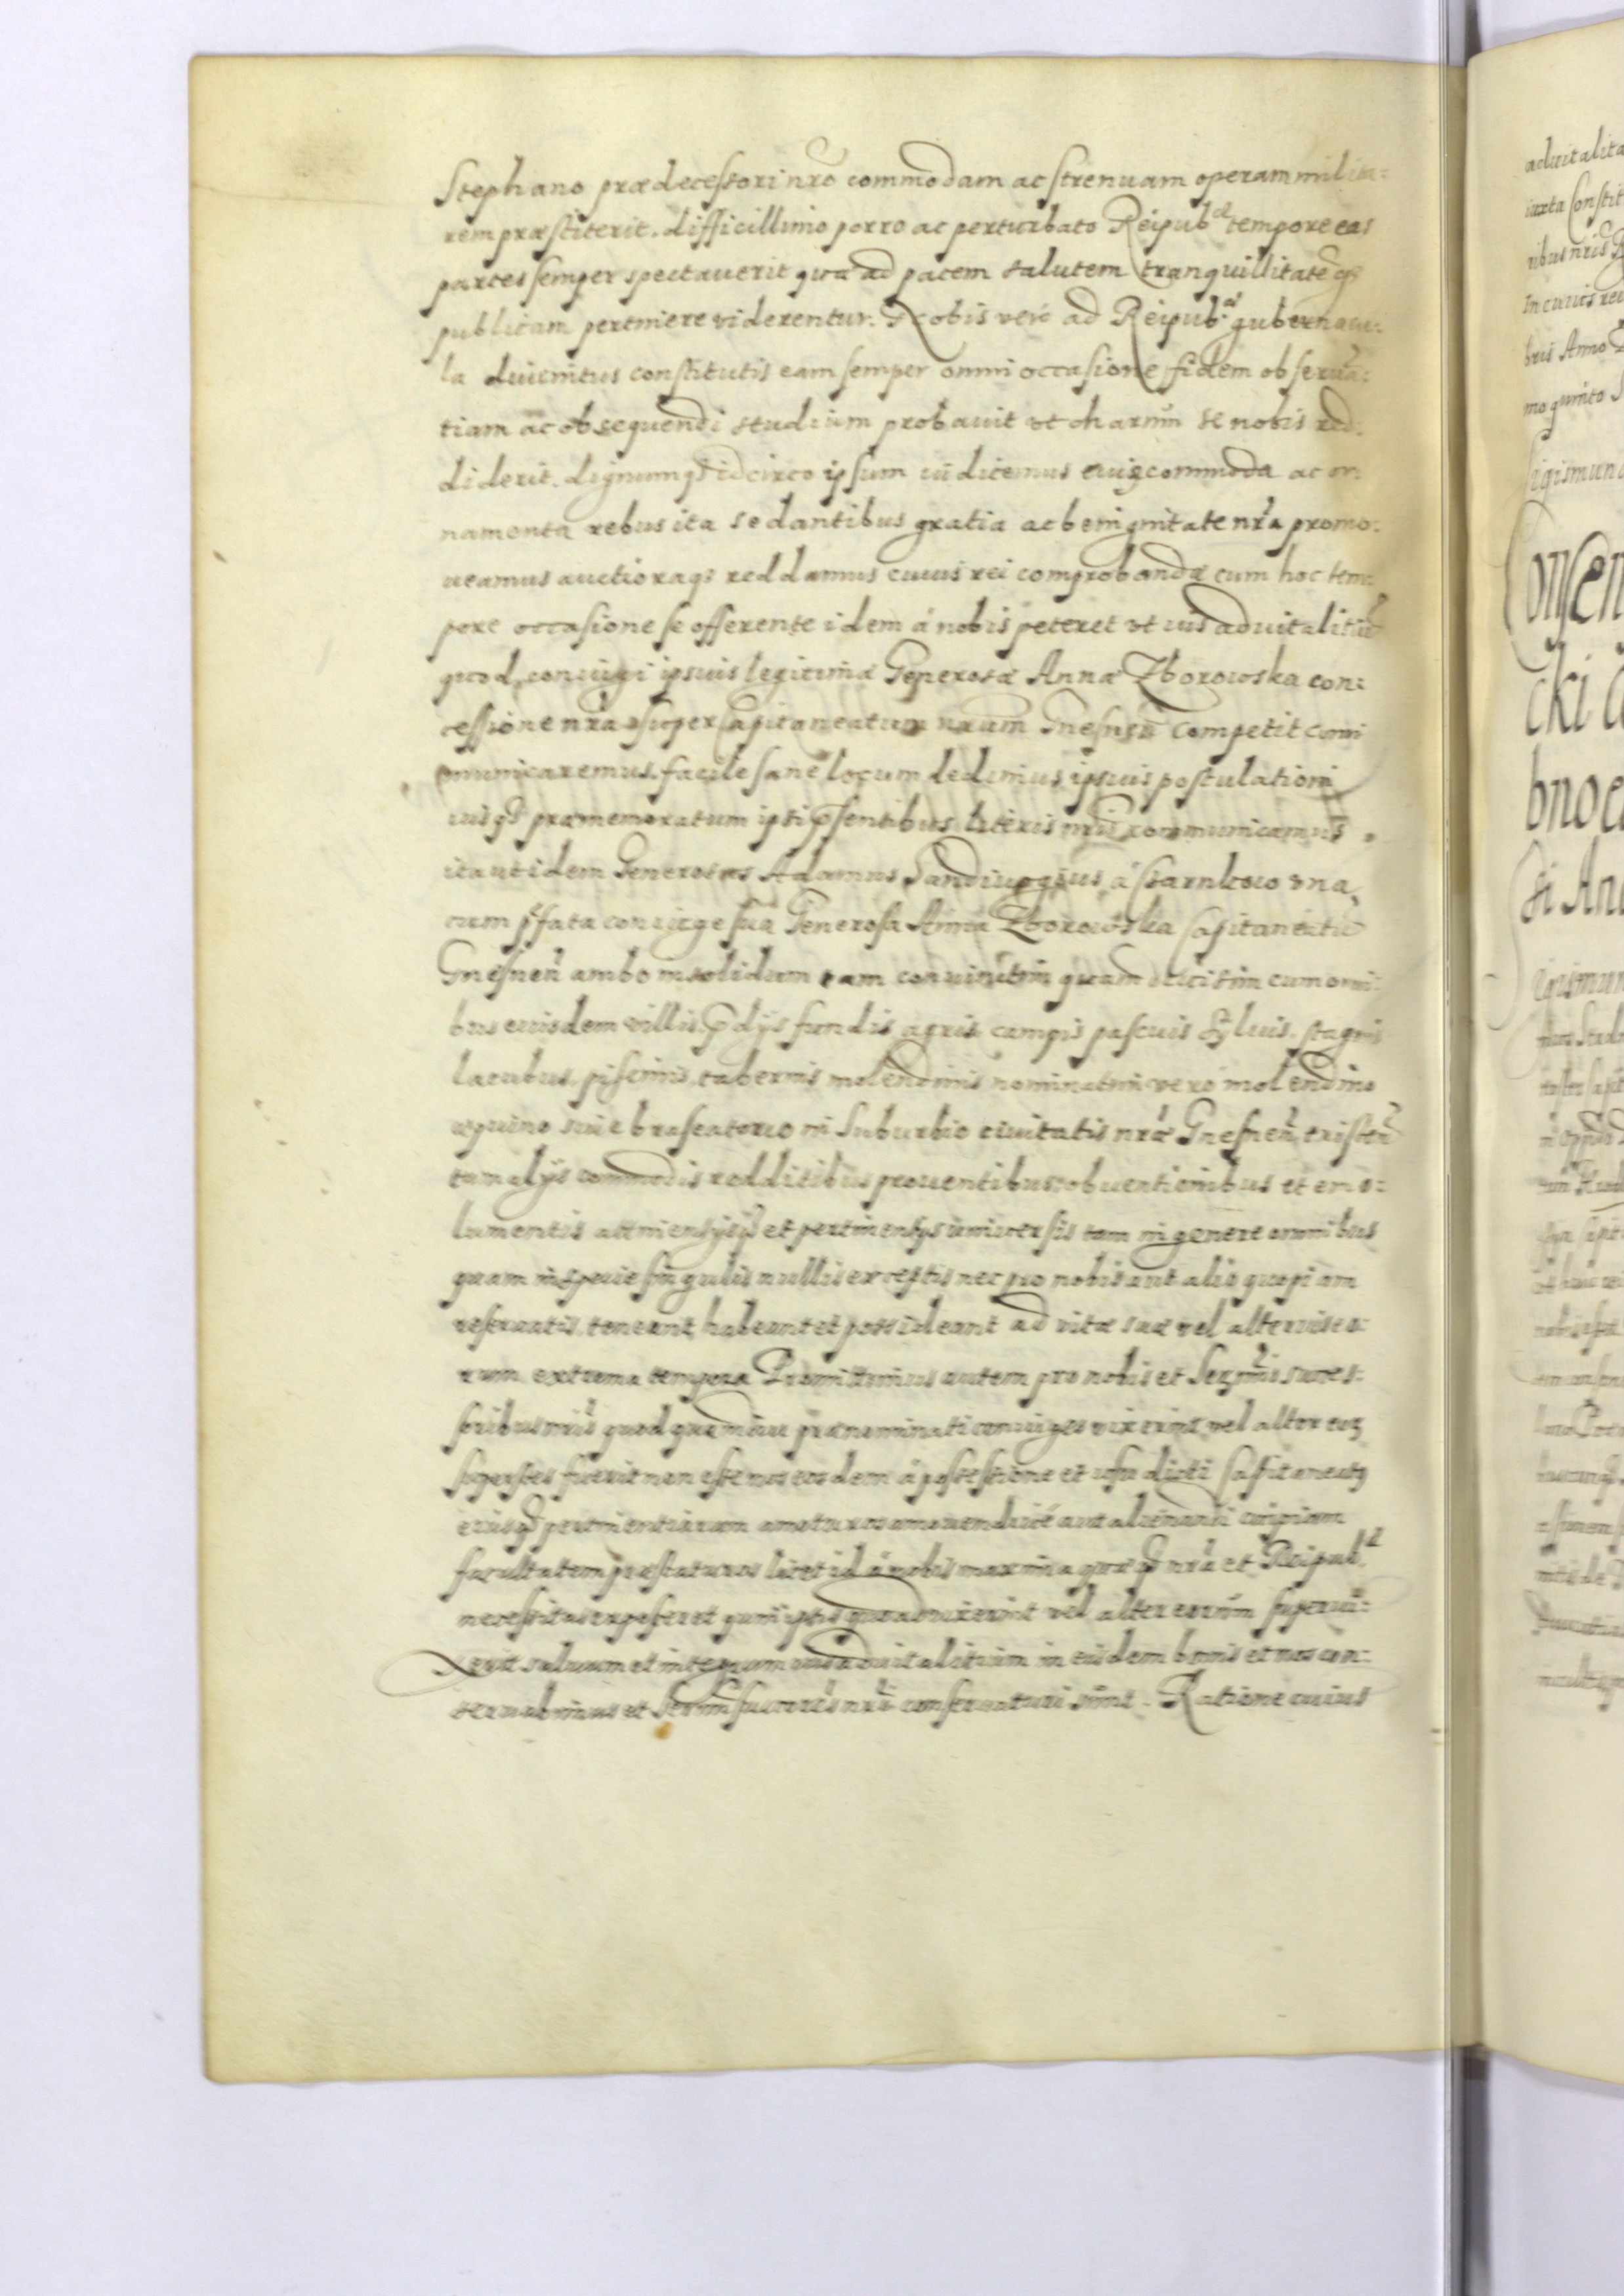 Stephano prædecessori nr̃o commodam ac strenuam operam milita=
rem præstiterit. difficillimo porro ac perturbato Reipubcæ tempore eas
partes semper spectauerit quæ ad pacem salutem tranquillitatẽq3
publicam pertinere viderentur. Nobis verò ad Reipub.cæ gubernacu=
la diuinitus constitutis eam semper omni occasione fidem obseruã=
tiam ac obsequendi studium probauit vt charum se nobis red:
diderit. dignumq3 idcirco ipsum iudicemus cuius commoda ac or:
namenta rebus ita se dantibus gratia ac benignitate nr̃a promo:
ueamus auctioraq3 reddamus cuius rei comprobandæ cum hoc tem:
pore occasione se offerente idem à nobis peteret vt ius aduitalitiũ
quod coniugi ipsius legitimæ Generosæ Annæ Zborowska con:
cessione nr̃a super Capitaneatum nr̃um Gnesneñ competit com
municaremus. facile sanè locum dedimus ipsius postulationi
iusq3 præmemoratum ipsi p̃sentibus literis nr̃is communicamus.
ita ut idem Generosus Adamus Sandiuogius à Czarnkow vna
cum p̃fata coniuge sua Generosa Anna Zborowska Capitaneatũ
Gnesneñ ambo in solidum tam coniunctim quam diuisim cum omni:
bus eiusdem villis p̃dijs fundis agris campis pascuis syluis. stagnis
lacubus. piscinis. tabernis molendinis nominatim vero molendino
equino siue braseatorio in Suburbio ciuitatis nr̃æ Gnesneñ existeñ
tum alijs commodis redditibus prouentibus obuentionibus et emo:
lumentis attinentijsq3 et pertinentijs vniuersis tam in genere omnibus
quam in specie singulis nullis exceptis nec pro nobis aut alio quopiam
reseruatis. teneant habeant et possideant ad vitæ suæ vel alterius eo:
rum extrema tempora Promittimus autem pro nobis et Sermis succes:
soribus nr̃is quod quamdiu prænominati coniuges vixerint vel alter eorum
superstes fuerit non esse nos eosdem à possessione et vsu dicti Capitaneatus
eiusq3 pertinentiarum amoturos amouendiue aut alienandi cuipiam
facultatem præstaturos licet id à nobis maxima quæq3 nr̃a et Reipub.cæ
necessitas exposceret quin ipsis quoad vixerint vel alter eorum superui:
xerit saluum et integrum ius aduitalitium in eisdem bonis et nos con:
seruabimus et Sermi successores nr̃i conseruaturi sunt. Ratione cuius